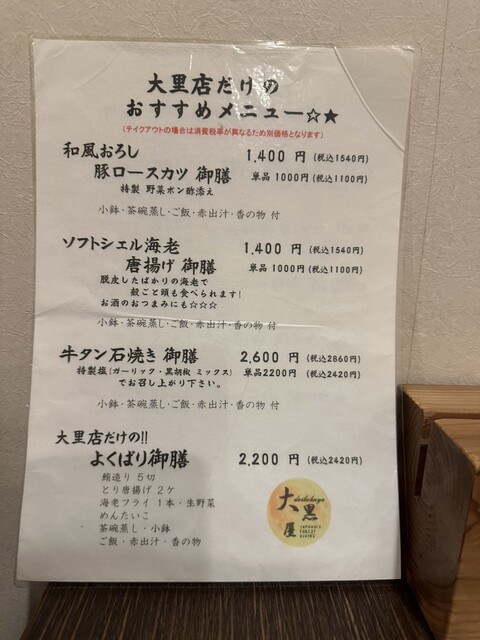 大里店だけの
おすすめメニュー☆★
(テイクアウトの場合は消費税率が異なるため別価格となります)
和風おろし 1,400 円 (税込1540円)
豚ロースカツ 御膳 単品 1000円 (税込1100円)
特製 野菜ポン酢添え
小鉢・茶碗蒸し・ご飯・赤出汁・香の物 付
ソフトシェル海老 1,400 円 (税込1540円)
唐揚げ 御膳 単品 1000円 (税込1100円)
脱皮したばかりの海老で
殻ごと頭も食べられます!
お酒のおつまみにも☆☆☆
小鉢・茶碗蒸し・ご飯・赤出汁・香の物 付
牛タン石焼き 御膳 2,600 円 (税込2860円)
特製塩(ガーリック・黒胡椒 ミックス) 単品2200円 (税込2420円)
でお召し上がり下さい。
小鉢・茶碗蒸し・ご飯・赤出汁・香の物 付
大里店だけの!!
よくばり御膳 2,200 円 (税込2420円)
鮪造り 5切
とり唐揚げ 2ケ
海老フライ 1本・生野菜
めんたいこ
茶碗蒸し・小鉢
ご飯・赤出汁・香の物
daikokuya
大黒屋
JAPANESE
FOREST
DINING